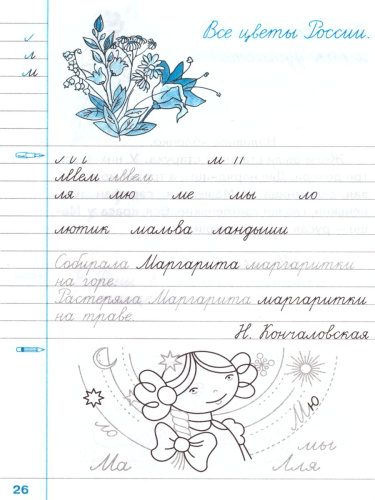 Все цветы России.
л
м
м
лввем лввем
ля мю ме мы ло
лютик мальва ландыши
Собирала Маргарита маргаритки
на горе.
Растеряла Маргарита маргаритки
на траве.
Н. Кончаловская
Мю
ло
мы
Ма
Аля
26